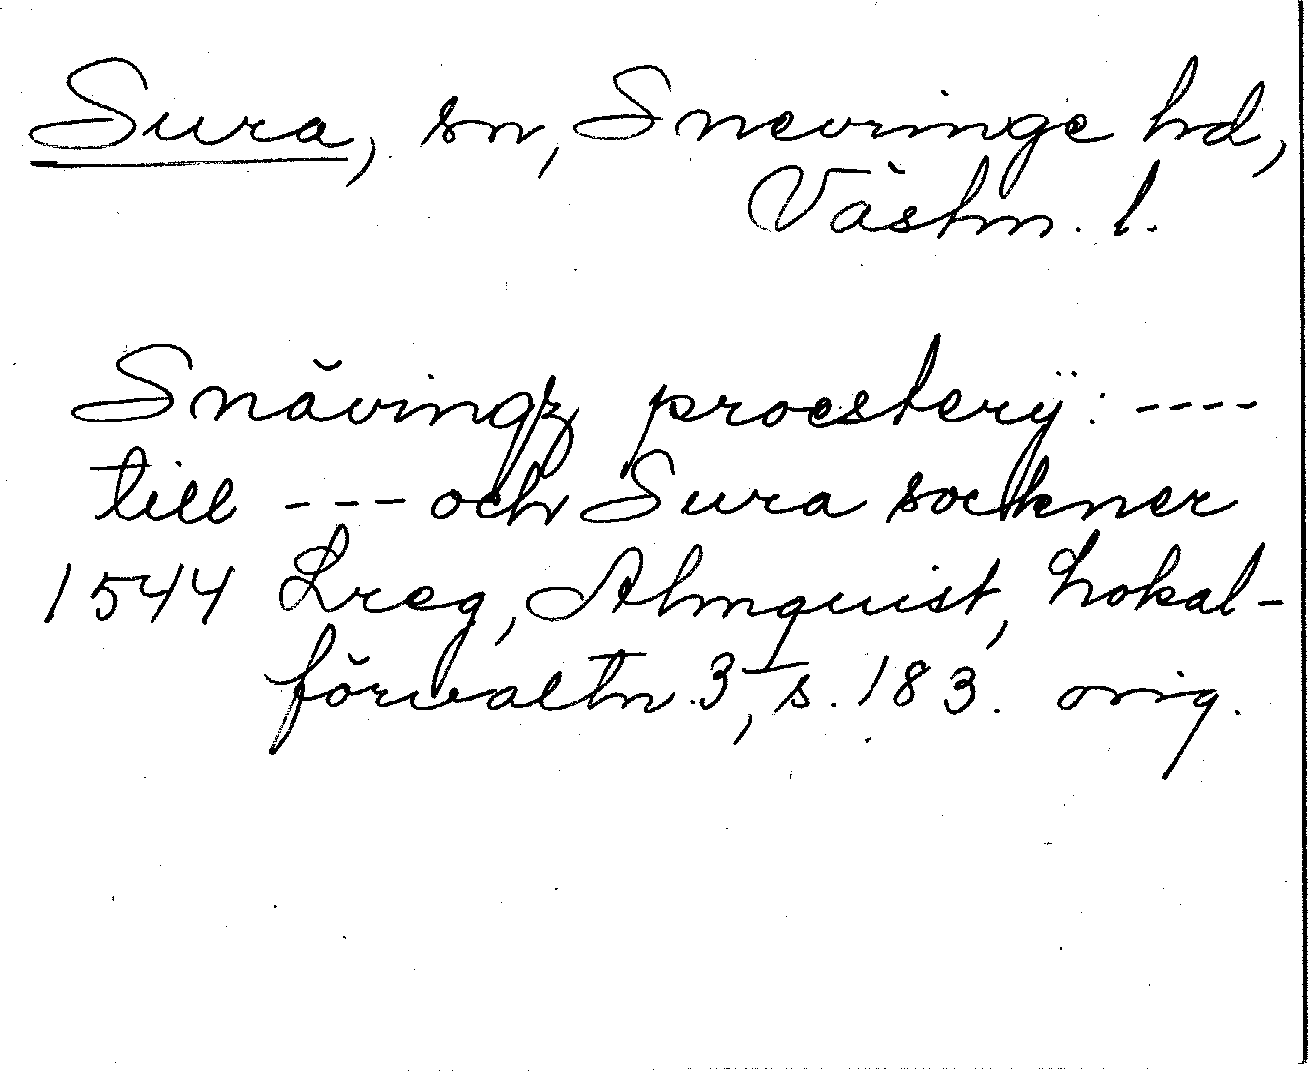 Sura, sn, Snevringe hd,
Västm. l.
Snävingz proesterÿ: ----
till --- och Sura sockner
1544 Lreg, Almquist, Lokal-
förvaltn. 3, s. 183. orig.